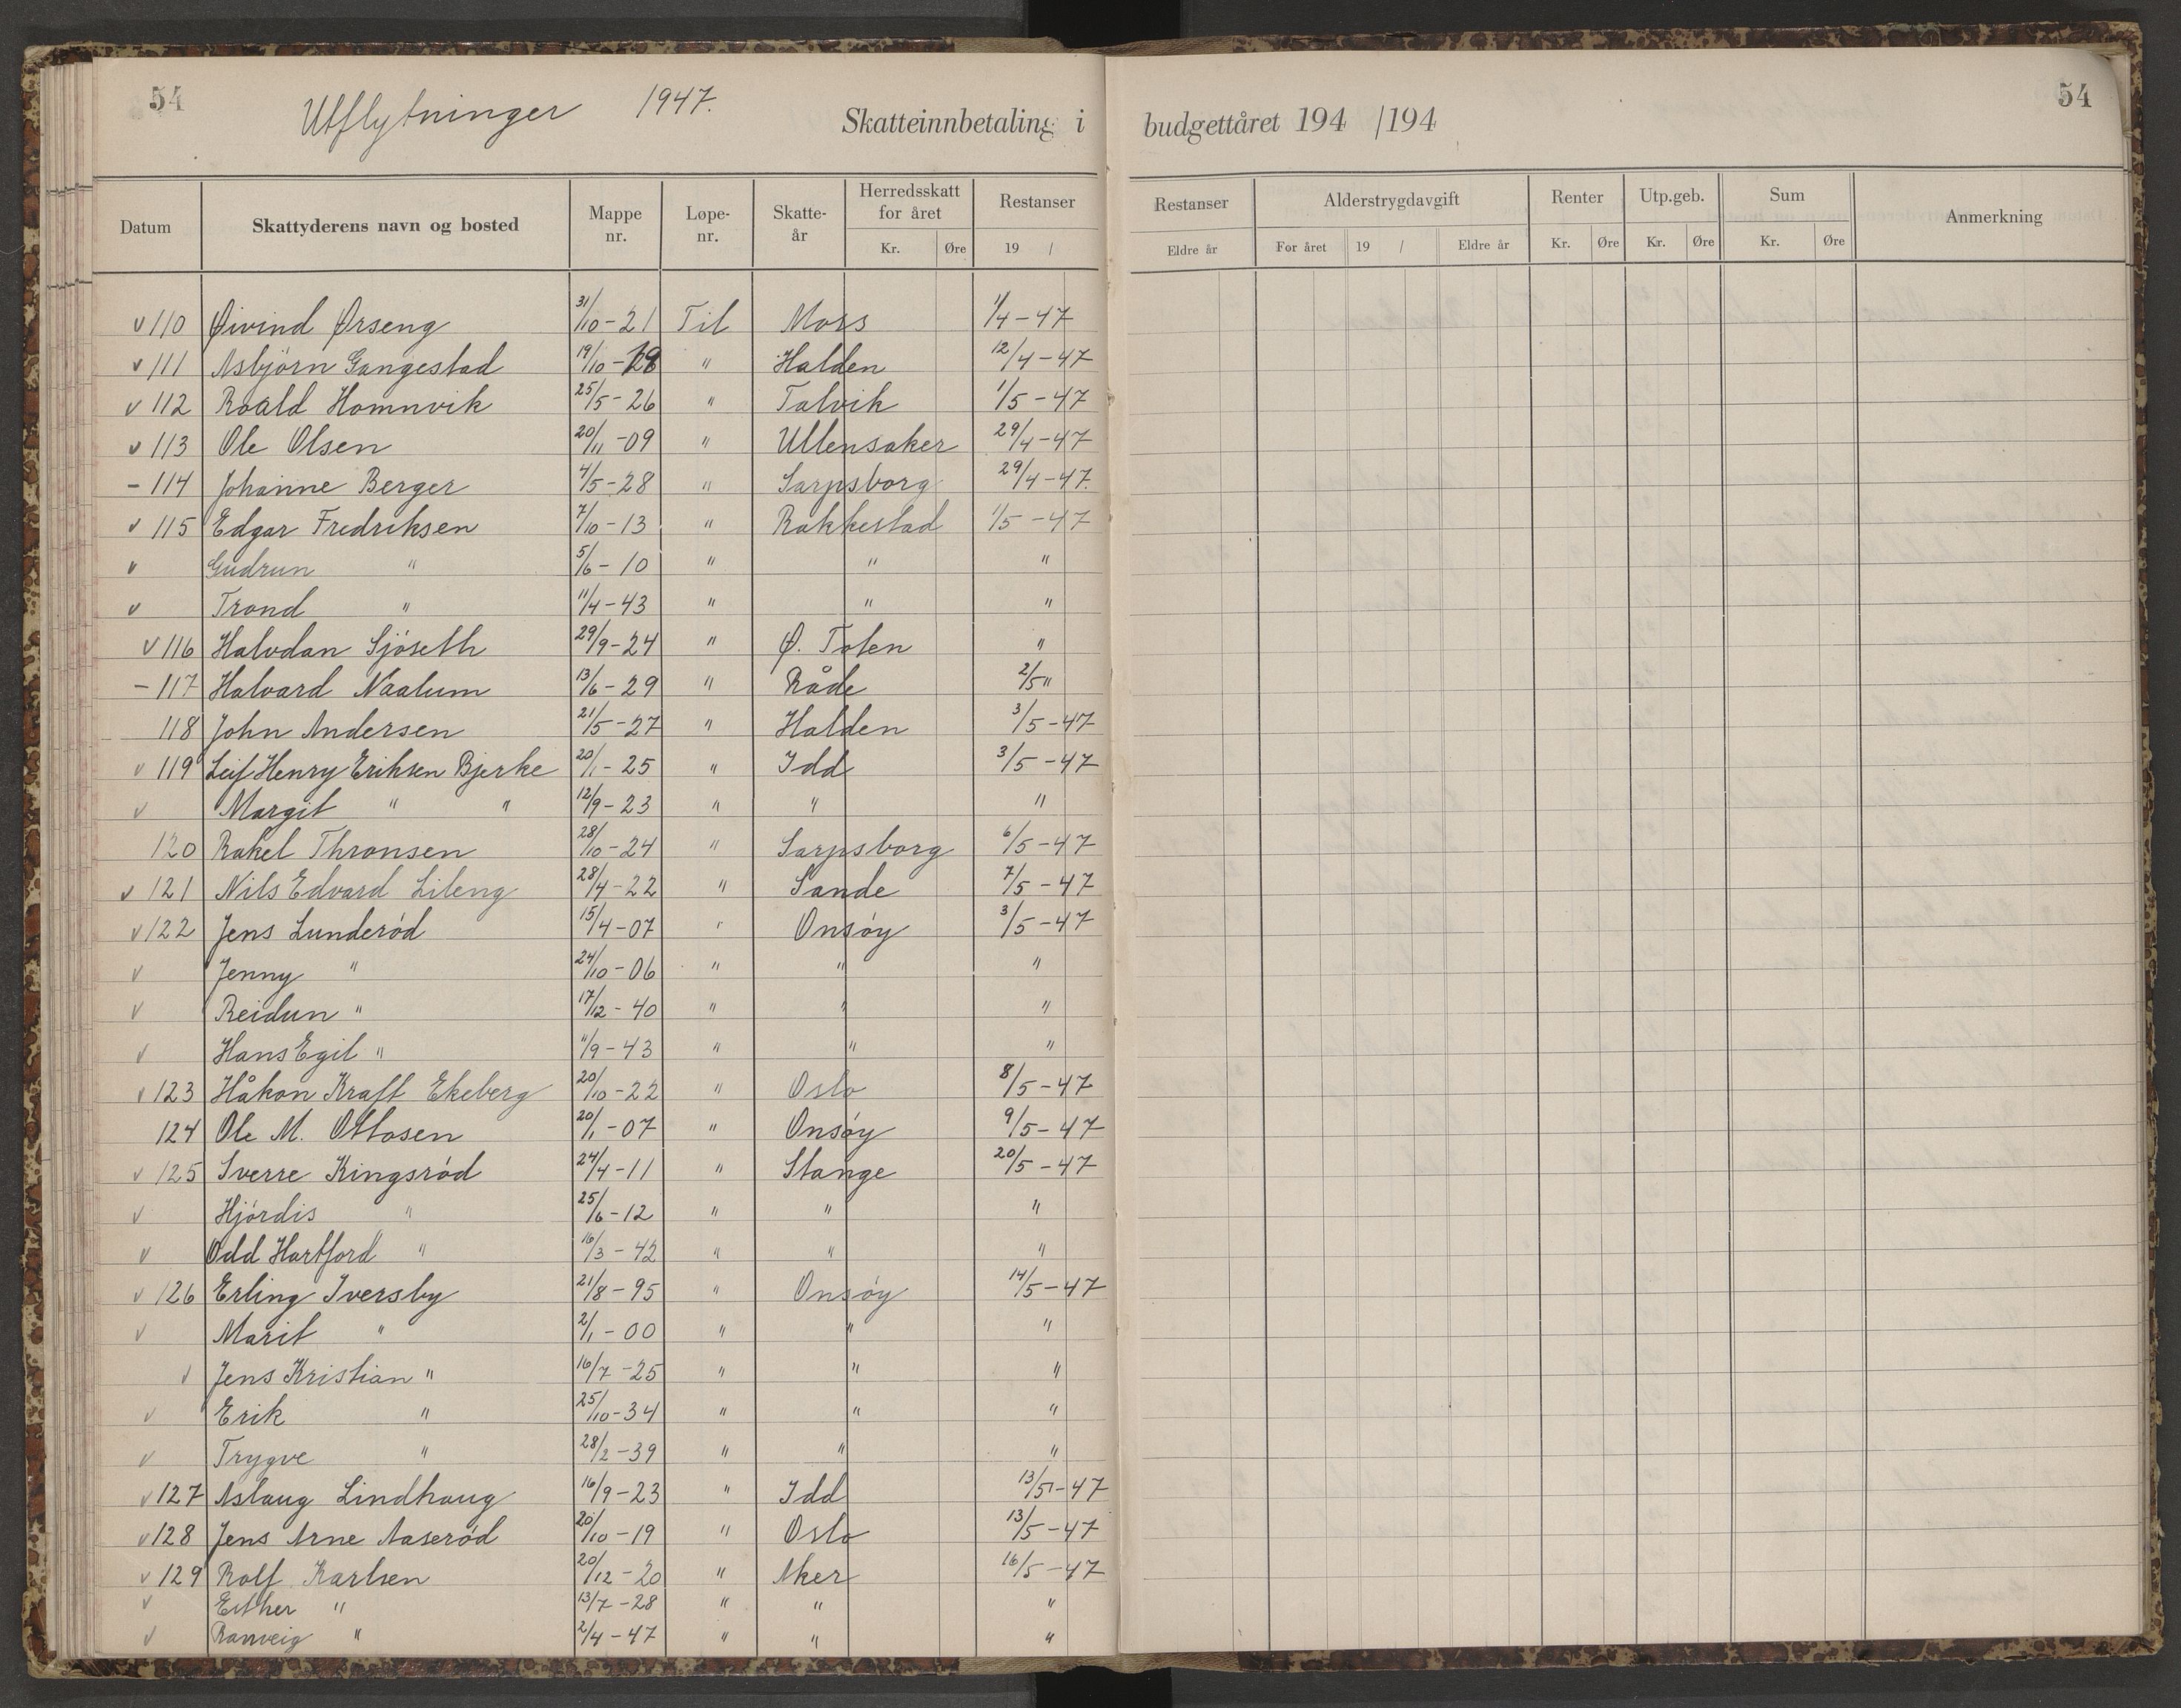 54
Utflytninger 1947.
Skatteinnbetaling i budgettåret 194 /194
54
Datum Skattyderens navn og bosted Mappe nr. Løpe-nr. Skatte-år Herredsskatt for året Kr. Øre Restanser 19 / Restanser Eldre år Alderstrygdavgift For året 19 / Eldre år Renter Kr. Øre Utp.geb. Kr. Øre Sum Kr. Øre Anmerkning
v 110 Øivind Ørseng 31/10-21 Til Moss 1/4-47
v 111 Asbjörn Gangestad 19/10- " Halden 12/4-47
v 112 Roald Homnvik 25/5-26 " Talvik 1/5-47
v 113 Ole Olsen 20/11-09 " Ullensaker 29/4-47
- 114 Johanne Berger 4/5-28 " Sarpsborg 29/4-47.
v 115 Edgar Fredriksen 7/10-13 " Rakkestad 1/5-47
v Gudrun " 5/6-10 " " "
v Trond " 11/4-43 " " "
v 116 Halvdan Sjöseth 29/9-24 " Ø. Toten "
- 117 Halvard Naalum 13/6-29 " Råde 2/5 "
118 John Andersen 21/5-27 " Halden 3/5-47
v 119 Leif Henry Eriksen Bjerke 20/1-25 " Idd 3/5-47
v Margit " " 12/9-23 " " "
120 Rakel Thronsen 28/10-24 " Sarpsborg 6/5-47
v 121 Nils Edvard Lileng 28/4-22 " Sande 7/5-47
v 122 Jens Lunderöd 15/4-07 " Onsöy 3/5-47
v Jenny " 24/10-06 " " "
v Reidun " 17/12-40 " " "
v Hans Egil " 11/9-43 " " "
v 123 Håkon Kraft Ekeberg 20/10-22 " Oslo 8/5-47
124 Ole M. Ottosen 20/1-07 " Onsöy 9/5-47
v 125 Sverre Kingsröd 24/4-11 " Stange 20/5-47
v Hjördis " 25/6-12 " " "
v Odd Hartford " 16/3-42 " " "
v 126 Erling Iversby 21/8-95 " Onsöy 14/5-47
v Marit " 2/1-00 " " "
v Jens Kristian " 16/7-25 " " "
v Erik " 25/10-34 " " "
v Trygve " 28/2-39 " " "
v 127 Aslaug Lindhaug 16/9-23 " Idd 13/5-47
v 128 Jens Arne Aaseröd 20/10-19 " Oslo 13/5-47
v 129 Rolf Karlsen 20/12-20 " Aker 16/5-47
v Esther " 13/7-28 " " "
v Ranveig " 2/4-47 " " "